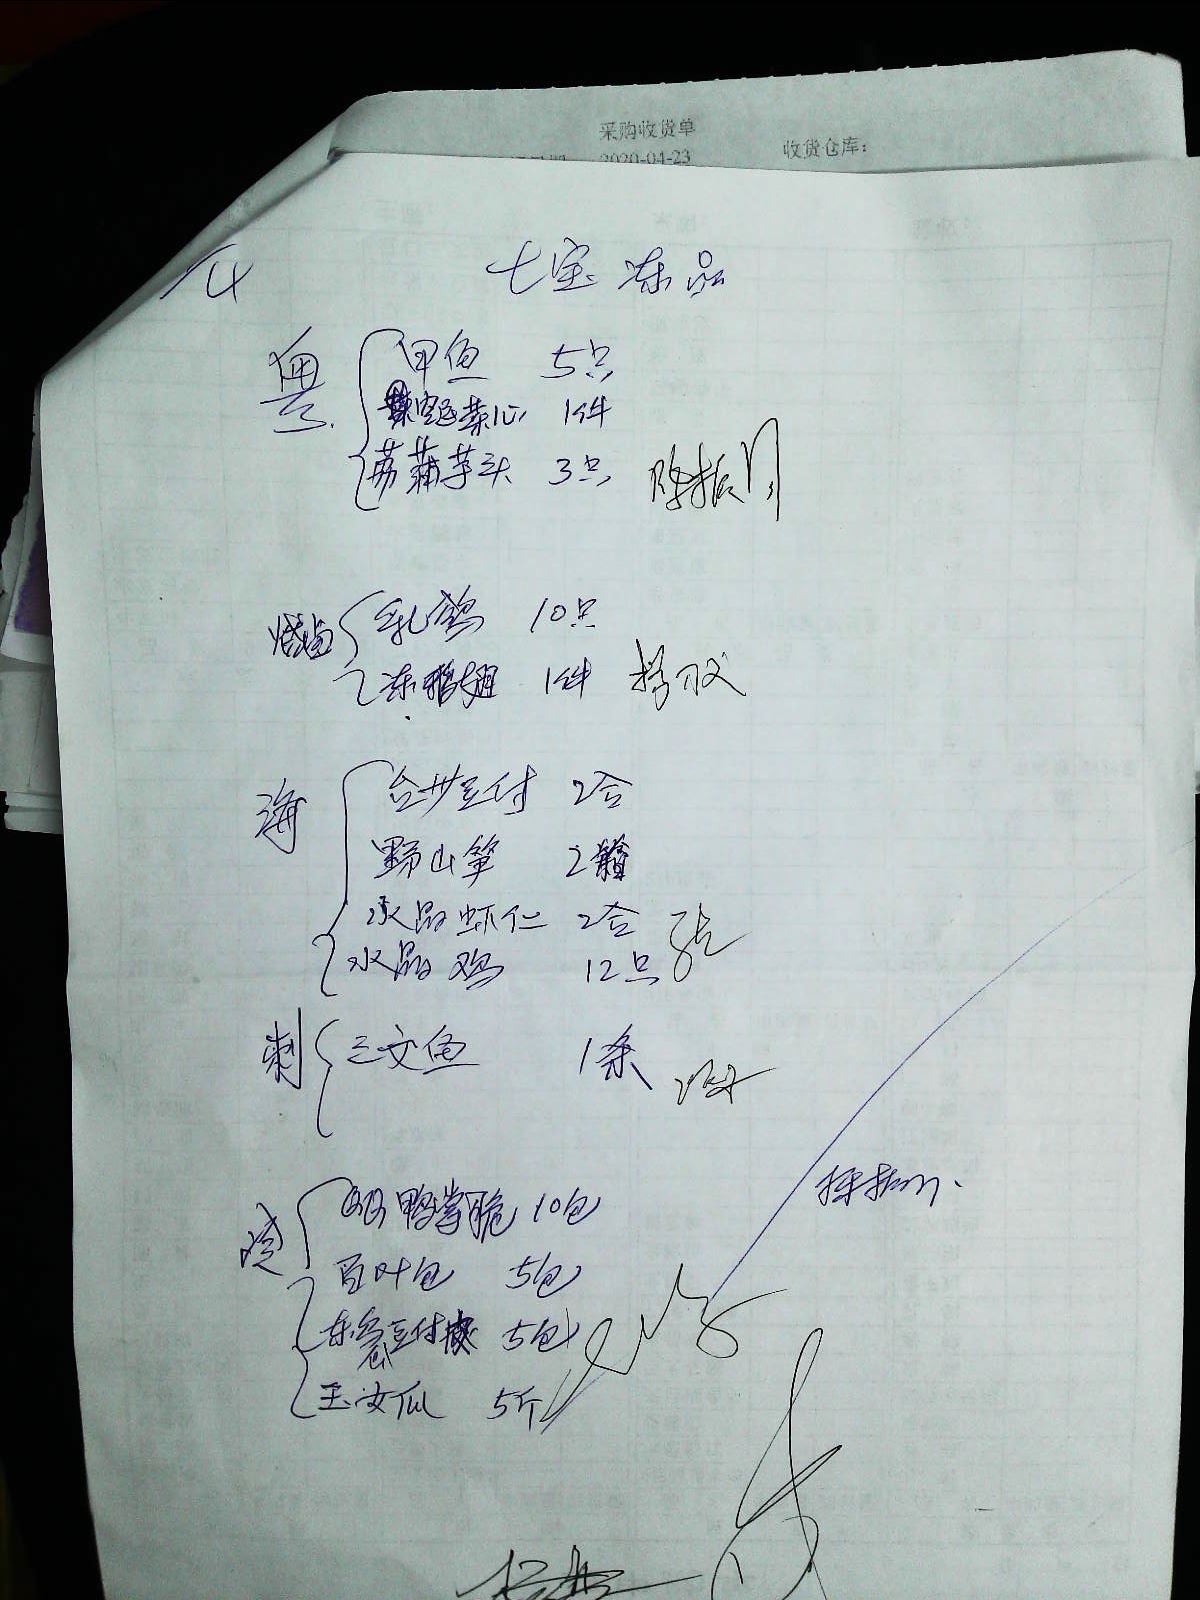 采购收货单
2020-04-23 收货仓库：
七宝冻品
粤 甲鱼 5只
菜心 1件
荔蒲芋头 3只
烧卤 乳鸽 10只
冻鸭翅 1件
海 台沙豆付 2合
野山笋 2箱
水晶虾仁 2合
水晶鸡 12只
刺 三文鱼 1条
冷 双双鸭掌脆 10包
百叶包 5包
东豆付皮 5包
玉女瓜 5斤